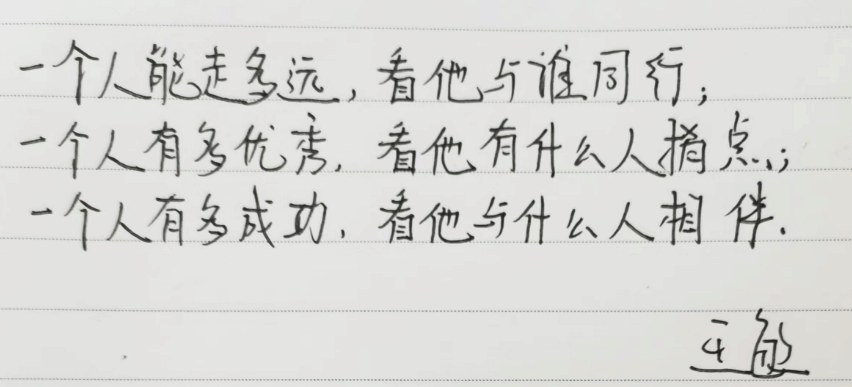 一个人能走多远,看他与谁同行;
一个人有多优秀,看他有什么人指点;
一个人有多成功,看他与什么人相伴.